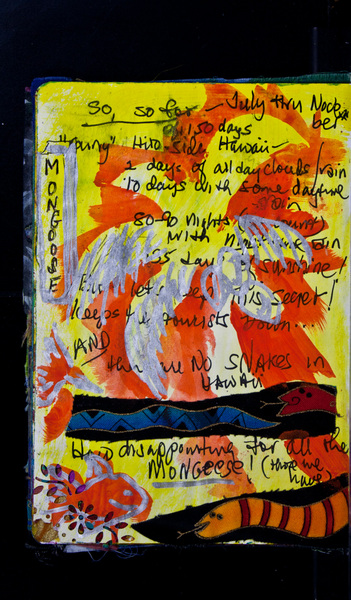 So, so far — July thru Nov
ber
150 days
"rainy" Hilo side, Hawaii —
2 days of all day clouds/rain
10 days with some daytime
rain
80-90 nights
with rain
days of sunshine!
let's keep this secret!
Keeps the tourists down...
AND
there are NO SNAKES in
HAWAII
How disappointing for all the
MONGEESE! (those we
have)
MONGOOSE